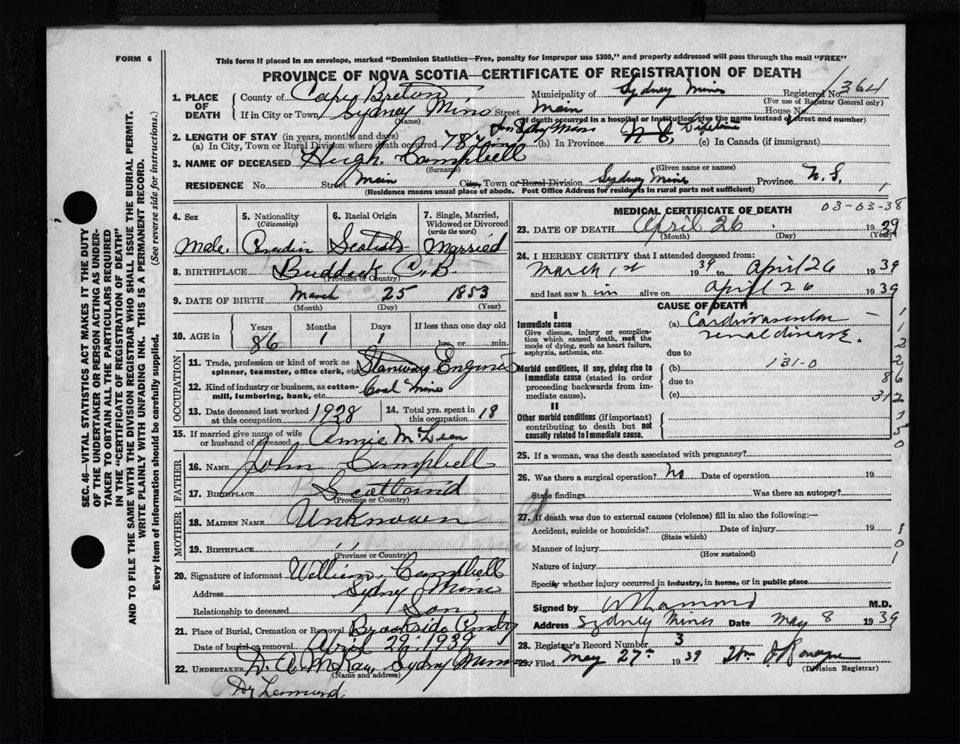 FORM 6
This form if placed in an envelope, marked "Dominion Statistics—Free, penalty for improper use $300," and properly addressed will pass through the mail "FREE"
PROVINCE OF NOVA SCOTIA—CERTIFICATE OF REGISTRATION OF DEATH
SEC. 46—VITAL STATISTICS ACT MAKES IT THE DUTY
OF THE UNDERTAKER OR PERSON ACTING AS UNDER-
TAKER TO OBTAIN ALL THE PARTICULARS REQUIRED
IN THE "CERTIFICATE OF REGISTRATION OF DEATH"
AND TO FILE THE SAME WITH THE DIVISION REGISTRAR WHO SHALL ISSUE THE BURIAL PERMIT.
WRITE PLAINLY WITH UNFADING INK. THIS IS A PERMANENT RECORD.
Every item of information should be carefully supplied. (See reverse side for instructions.)
1. PLACE OF DEATH County of Cape Breton Municipality of Sydney Mines Registered No. 364
(For use of Registrar General only)
If in City or Town Sydney Mines Street Main House No.
(Name) (If death occurred in a hospital or institution give the name instead of street and number)
2. LENGTH OF STAY (in years, months and days)
(a) In City, Town or Rural Division where death occurred 78 years in Sydney Mines (b) in Province N. S. Lifetime (c) in Canada (if immigrant)
3. NAME OF DECEASED Hugh Campbell
(Surname) (Given name or names)
RESIDENCE No. Street Main City, Town or Rural Division Sydney Mines Province N. S.
(Residence means usual place of abode. Post Office Address for residents in rural parts not sufficient) 1
4. Sex Male
5. Nationality (Citizenship)
6. Racial Origin Scotish
7. Single, Married, Widowed or Divorced (write the word) Married
8. BIRTHPLACE Baddeck C. B.
(Province or Country)
9. DATE OF BIRTH March 25 1853
(Month) (Day) (Year)
10. AGE in Years 86 Months 1 Days 1 If less than one day old hrs. or min.
OCCUPATION
11. Trade, profession or kind of work as spinner, teamster, office clerk, etc.
12. Kind of industry or business, as cotton-mill, lumbering, bank, etc. Coal Mine
13. Date deceased last worked at this occupation 1928
14. Total yrs. spent in this occupation 18
15. If married give name of wife or husband of deceased Annie McLean
FATHER
16. NAME John Campbell
17. BIRTHPLACE Scotland
(Province or Country)
MOTHER
18. MAIDEN NAME Unknown
19. BIRTHPLACE ,,
(Province or Country)
20. Signature of informant William Campbell
Address Sydney Mines
Relationship to deceased Son
21. Place of Burial, Cremation or Removal Brookside Cemtry
Date of burial or removal April 29, 1939
22. UNDERTAKER D. A. McKay, Sydney Mines
(Name and address)
MEDICAL CERTIFICATE OF DEATH 03-03-38
23. DATE OF DEATH April 26 1939
(Month) (Day) (Year)
24. I HEREBY CERTIFY that I attended deceased from:
March 1st 1939 to April 26 1939
and last saw him alive on April 26 1939
CAUSE OF DEATH
I
Immediate cause
Give disease, injury or complication which caused death, not the mode of dying, such as heart failure, asphyxia, asthenia, etc.
(a) Cardiovascular renal disease.
due to
Morbid conditions, if any, giving rise to immediate cause (stated in order proceeding backwards from immediate cause).
(b) 131-0
due to
(c)
II
Other morbid conditions (if important) contributing to death but not causally related to immediate cause.
25. If a woman, was the death associated with pregnancy?
26. Was there a surgical operation? No Date of operation 19
State findings Was there an autopsy?
27. If death was due to external causes (violence) fill in also the following:—
Accident, suicide or homicide? Date of injury 19
(State which)
Manner of injury
(How sustained)
Nature of injury
Specify whether injury occurred in industry, in home, or in public place
Signed by M.D.
Address Sydney Mines Date May 8 1939
28. Registrar's Record Number 3
29. Filed May 27th 1939
(Division Registrar)